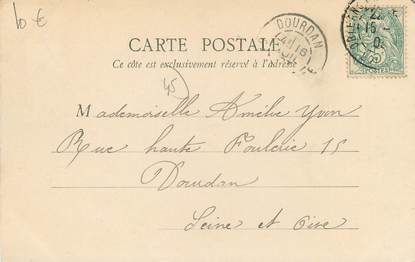 10 €
DOURDAN
16
CARTE POSTALE
Ce côté est exclusivement réservé à l'adresse
45
Mademoiselle Amélie Yvon
Rue haute Foulerie 15
Dourdan
Seine et Oise